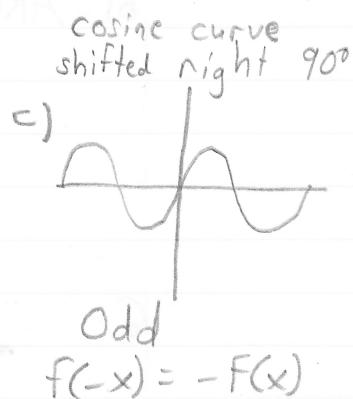 cosine curve
shifted right 90°
c)
Odd
f(-x) = -F(x)